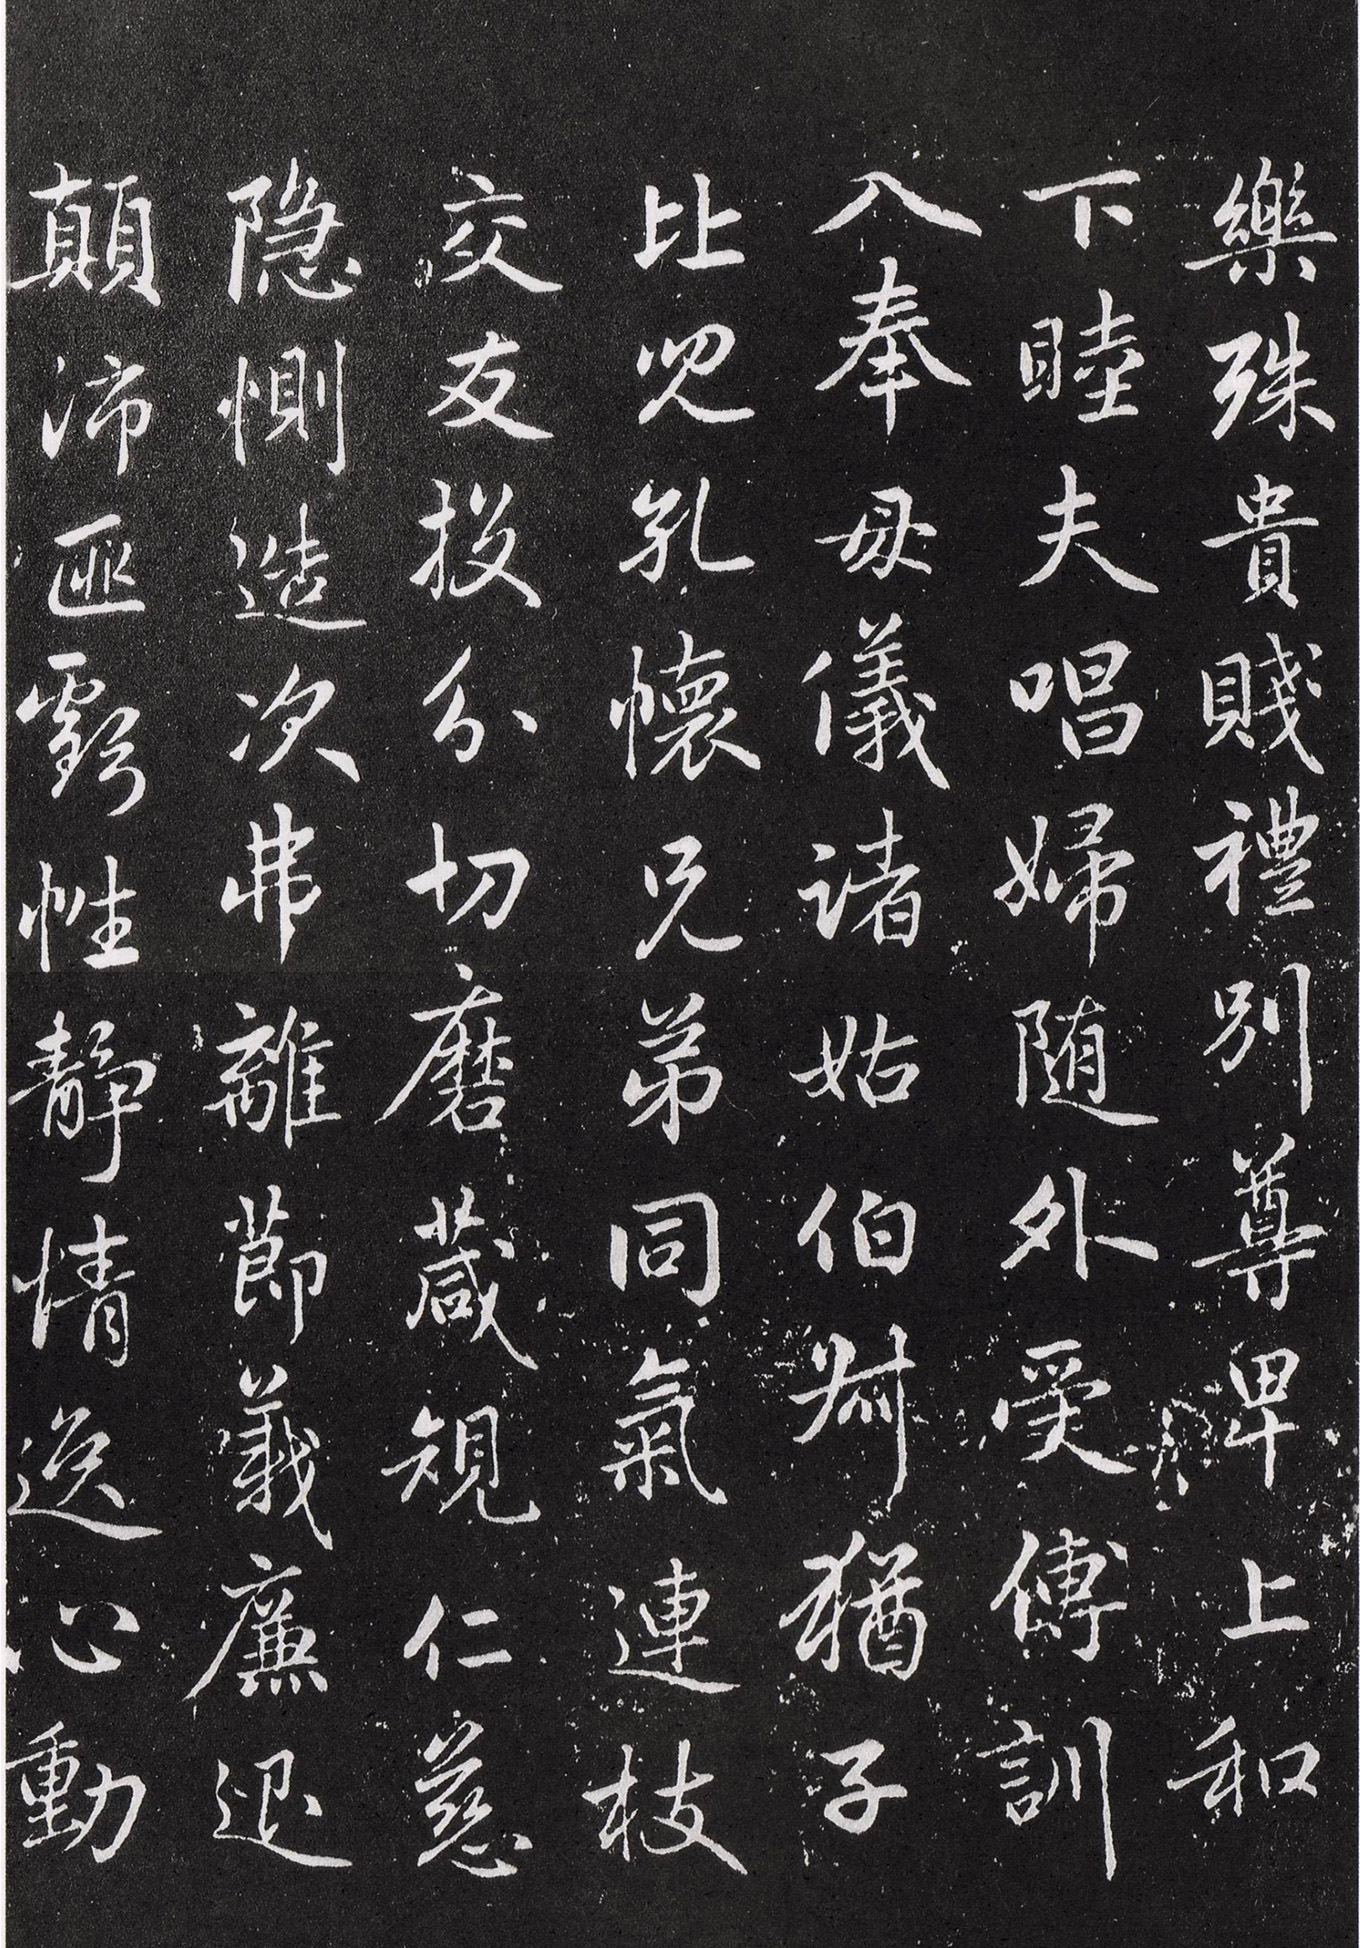 樂殊貴賤禮別尊卑上和
下睦夫唱婦随外受傅訓
入奉母儀諸姑伯叔猶子
比兒孔懷兄弟同氣連枝
交友投分切磨葴規仁慈
隱惻造次弗離節義廉退
顛沛匪虧性靜情逸心動